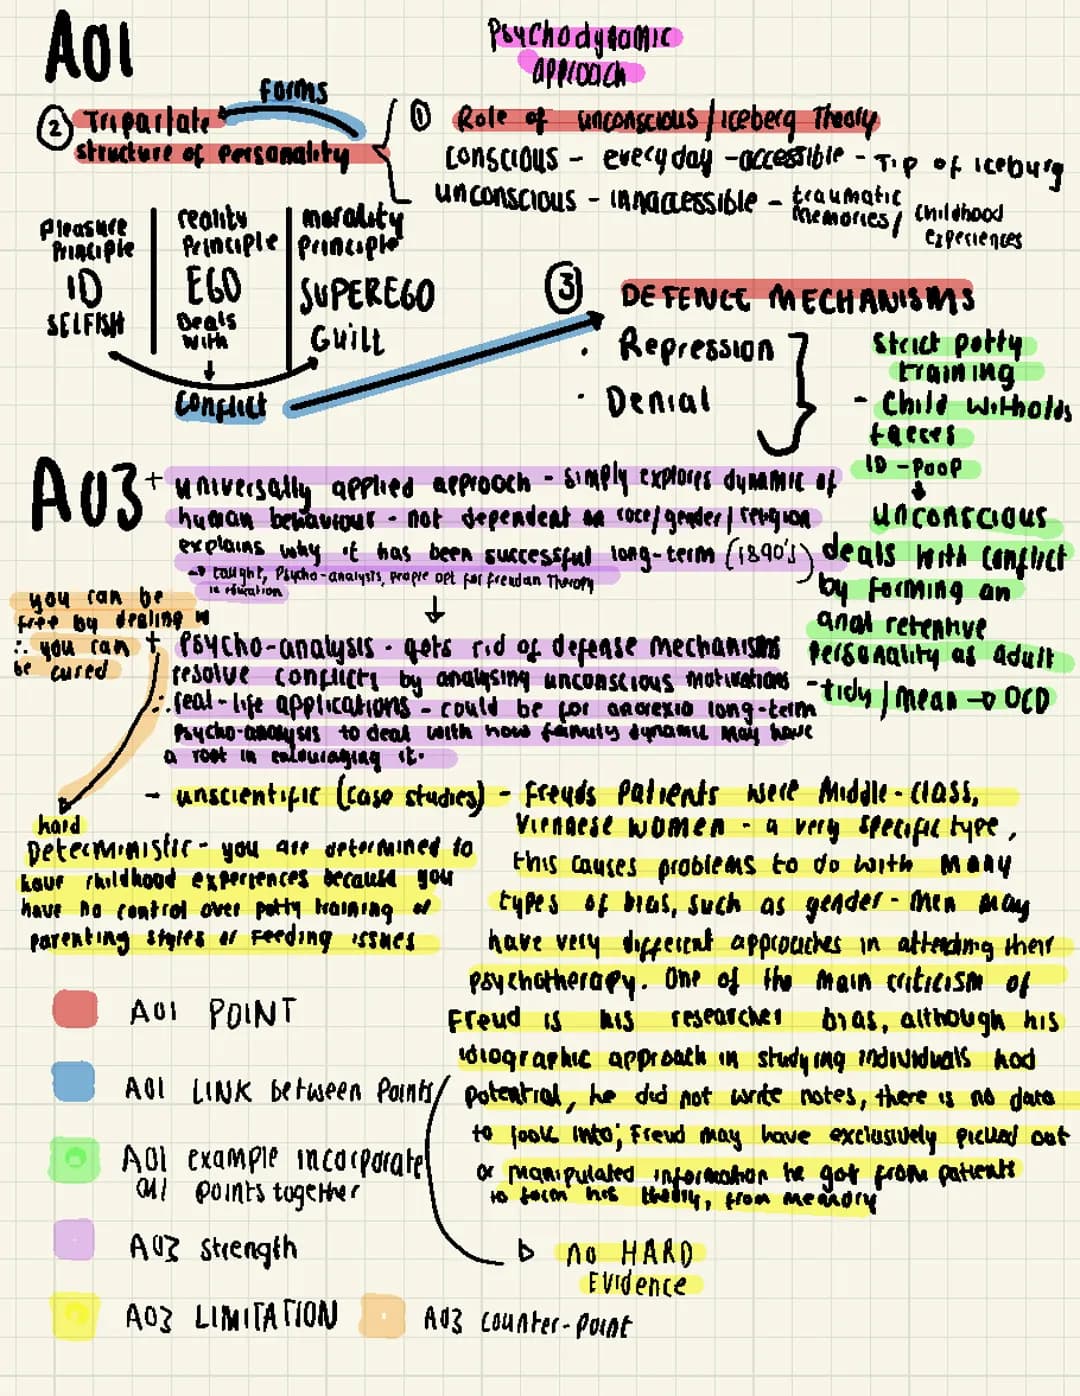 AO1
Psychodynamic
approach
forms
② Tripartate
structure of personality
① Role of unconscious / iceberg Theory
conscious - everyday - accessible - Tip of iceburg
unconscious - innaccessible - traumatic
memories / childhood
experiences
Pleasure
Principle
ID
SELFISH
reality
Principle
EGO
Deals
with
morality
principle
SUPEREGO
Guilt
conflict
③ DEFENCE MECHANISMS
· Repression
· Denial
strict potty
training
- Child witholds
faeces
ID - poop
unconscious
deals with conflict
by forming an
anal retentive
personality as adult
- tidy / mean → OCD
AO3
+ universally applied approach - simply explores dynamic of
human behaviour - not dependent on race / gender / religion
explains why it has been successful long-term (1890's)
→ taught, Psycho-analysis, people opt for freudan Therapy
in education
you can be
free by dealing w
∴ you can
be cured
+ Psycho-analysis - gets rid of defense mechanisms
resolve conflicts by analysing unconscious motivations
∴ real-life applications - could be for anorexia long-term
Psycho-analysis to deal with how family dynamic may have
a root in encouraging it.
- unscientific (case studies) - Freuds patients were Middle-class,
Viennese women - a very specific type,
this causes problems to do with many
types of bias, such as gender - men may
have very different approaches in attending their
psychotherapy. One of the main criticism of
Freud is his researcher bias, although his
idiographic approach in studying individuals had
potential, he did not write notes, there is no data
to look into; Freud may have exclusively picked out
or manipulated information he got from patients
to form his theory, from memory
no HARD
Evidence
hard
Deterministic - you are determined to
have childhood experiences because you
have no control over potty training or
parenting styles or feeding issues
AO1 POINT
AO1 LINK between points
AO1 example incorporate
all points together
AO3 strength
AO3 LIMITATION
AO3 counter-point